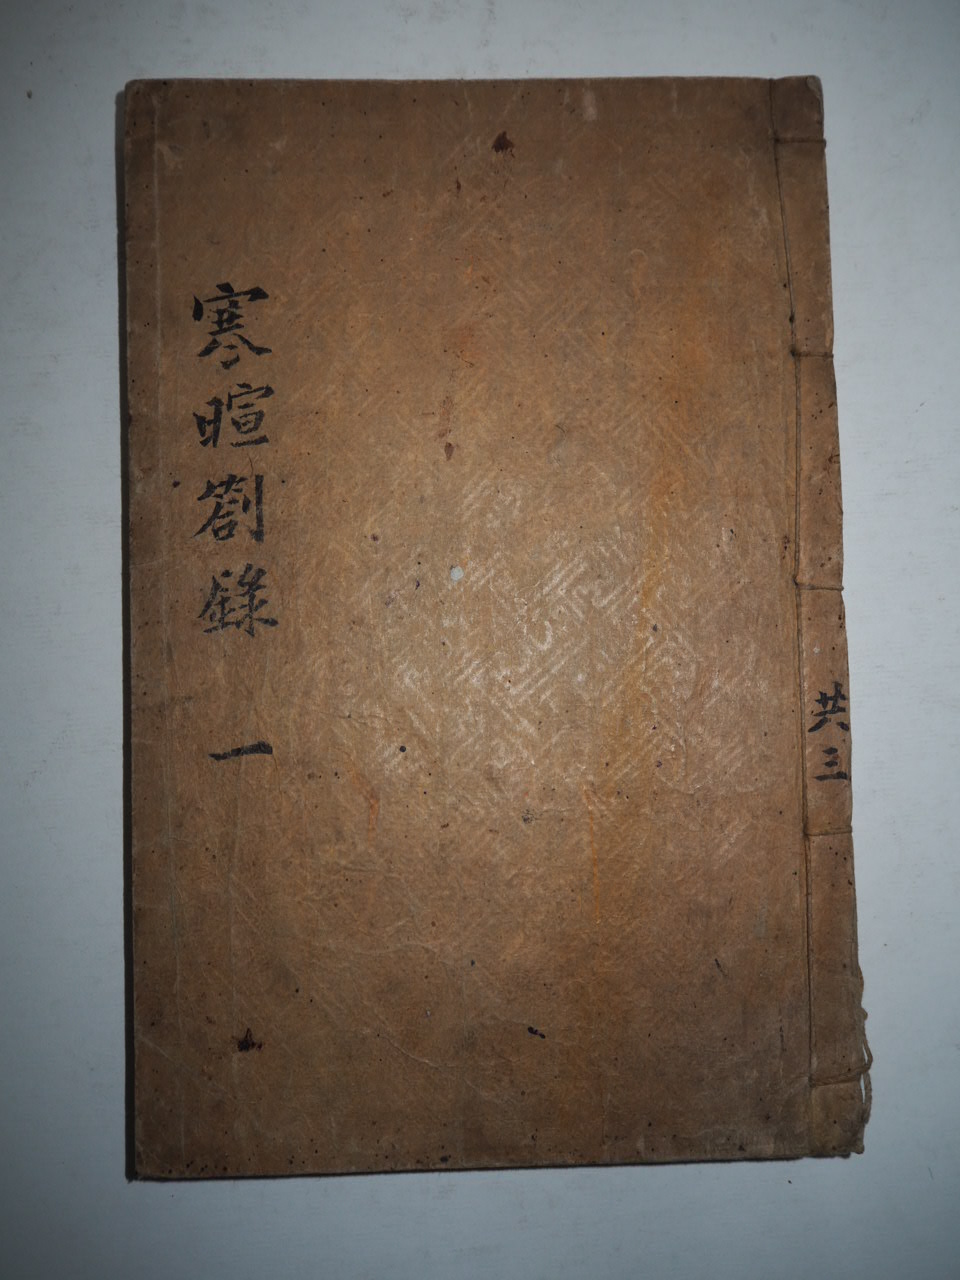 共三
寒暄劄錄 一